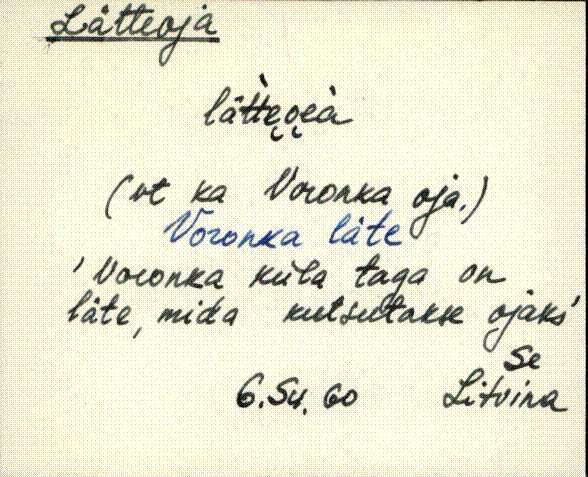 Lätteoja
lätte̮o̮eà
(vt ka Voronka oja.)
Voronka läte
'Voronka küla taga on
läte, mida kutsutakse ojaks'
Se
G. Su. 60 Litvina